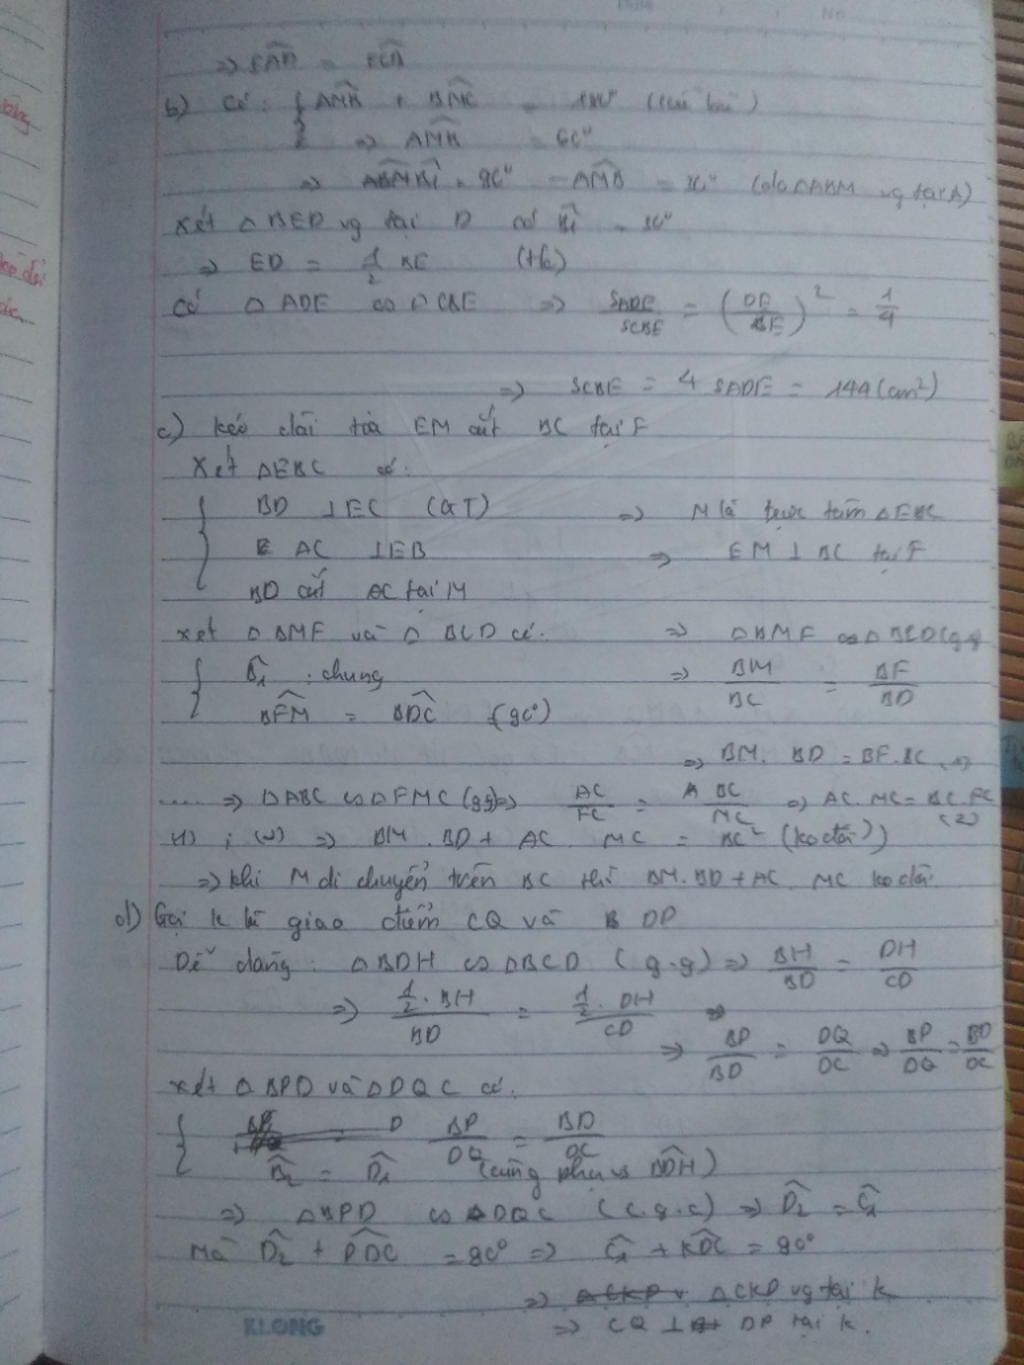 => EAD = ECB
b) Có : { AMB + BMC = 180° (kề bù)
=> AMB = 60°
=> B1 = 90° - AMB = 30° (do ΔABM vg tại A)
Xét ΔBED vg tại D có B1 = 30°
=> ED = 1/2 BE (t/c)
Có ΔADE ∽ ΔCBE => SADE/SCBE = (DE/BE)² = 1/4
=> SCBE = 4 SADE = 144 (cm²)
c) Kéo dài tia EM cắt BC tại F
Xét ΔEBC có:
BD ⊥ EC (GT) => M là trực tâm ΔEBC
AC ⊥ EB => EM ⊥ BC tại F
BD cắt AC tại M
Xét ΔBMF và ΔBCD có. => ΔBMF ∽ ΔBCD (g.g)
{ B1 : chung => BM/BC = BF/BD
BFM = BDC (90°)
=> BM. BD = BF.BC (1)
..... => ΔABC ∽ ΔFMC (g.g) => AC/FC = BC/MC => AC.MC = BC.FC (2)
(1) ; (2) => BM.BD + AC. MC = BC² (ko đổi)
=> Khi M di chuyển trên BC thì BM.BD + AC. MC ko đổi.
d) Gọi K là giao điểm CQ và DP
Dễ dàng: ΔBDH ∽ ΔBCD (g.g) => BH/BD = DH/CD
=> 1/2.BH/BD = 1/2.DH/CD =>
=> BP/BD = DQ/DC => BP/DQ = BD/DC
Xét ΔBPD và ΔDQC có.
{ BP/DQ = BD/DC
B2 = D1 (cùng phụ vs BDH)
=> ΔBPD ∽ ΔDQC (c.g.c) => D2 = C1
Mà D2 + PDC = 90° => C1 + KDC = 90°
=> ΔCKD vg tại K
=> CQ ⊥ DP tại K.
KLONG